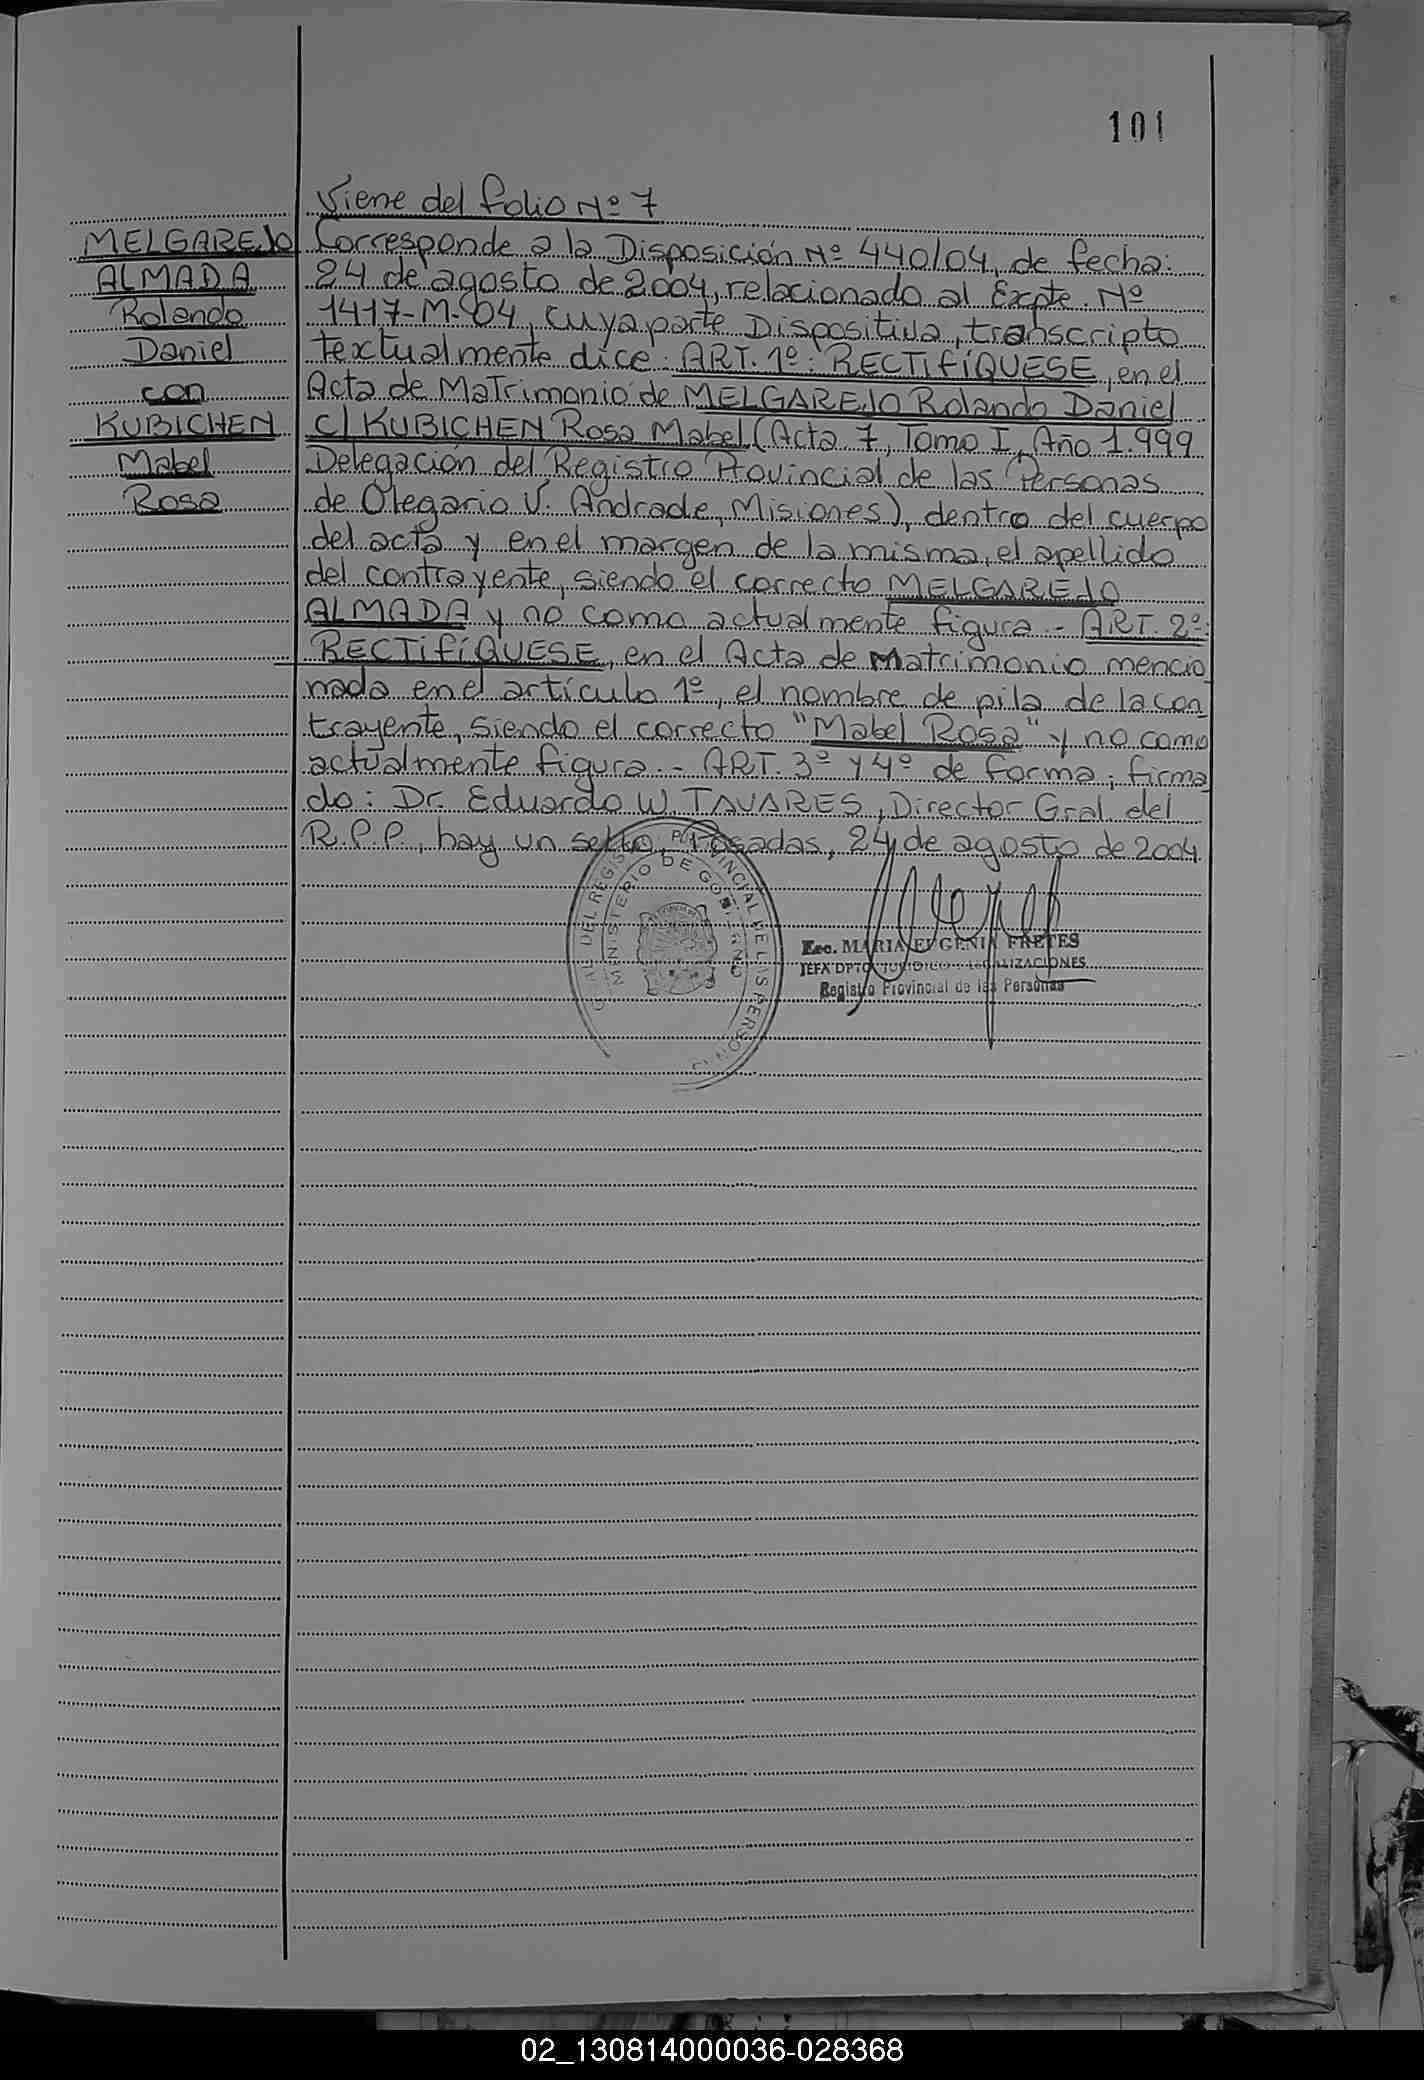 101
Viene del folio Nº 7
MELGAREJO
ALMADA
Rolando
Daniel
con
KUBICHEN
Mabel
Rosa
Corresponde a la Disposición Nº 440/04, de fecha:
24 de agosto de 2004, relacionado al Expte. Nº
1417-M-04, cuya parte Dispositiva, transcripto
textualmente dice: ART. 1º: RECTIFÍQUESE, en el
Acta de Matrimonio de MELGAREJO Rolando Daniel
c/ KUBICHEN Rosa Mabel (Acta 7, Tomo I, Año 1.999
Delegación del Registro Provincial de las Personas
de Olegario V. Andrade, Misiones), dentro del cuerpo
del acta y en el margen de la misma, el apellido
del contrayente, siendo el correcto MELGAREJO
ALMADA y no como actualmente figura.- ART. 2º:
RECTIFÍQUESE, en el Acta de Matrimonio mencio
nada en el artículo 1º, el nombre de pila de la con_
trayente, siendo el correcto "Mabel Rosa" y no como
actualmente figura.- ART. 3º y 4º de forma; firma
do: Dr. Eduardo W. TAVARES, Director Gral del
R.P.P., hay un sello, Posadas, 24 de agosto de 2004.
GRAL DEL REGIS PROVINCIAL DE LAS PERSON
MINISTERIO DE GOBIERNO
Esc. MARIA EUGENIA FRETES
JEFA DPTO JURIDICO Y LEGALIZACIONES
Registro Provincial de las Personas
02_130814000036-028368